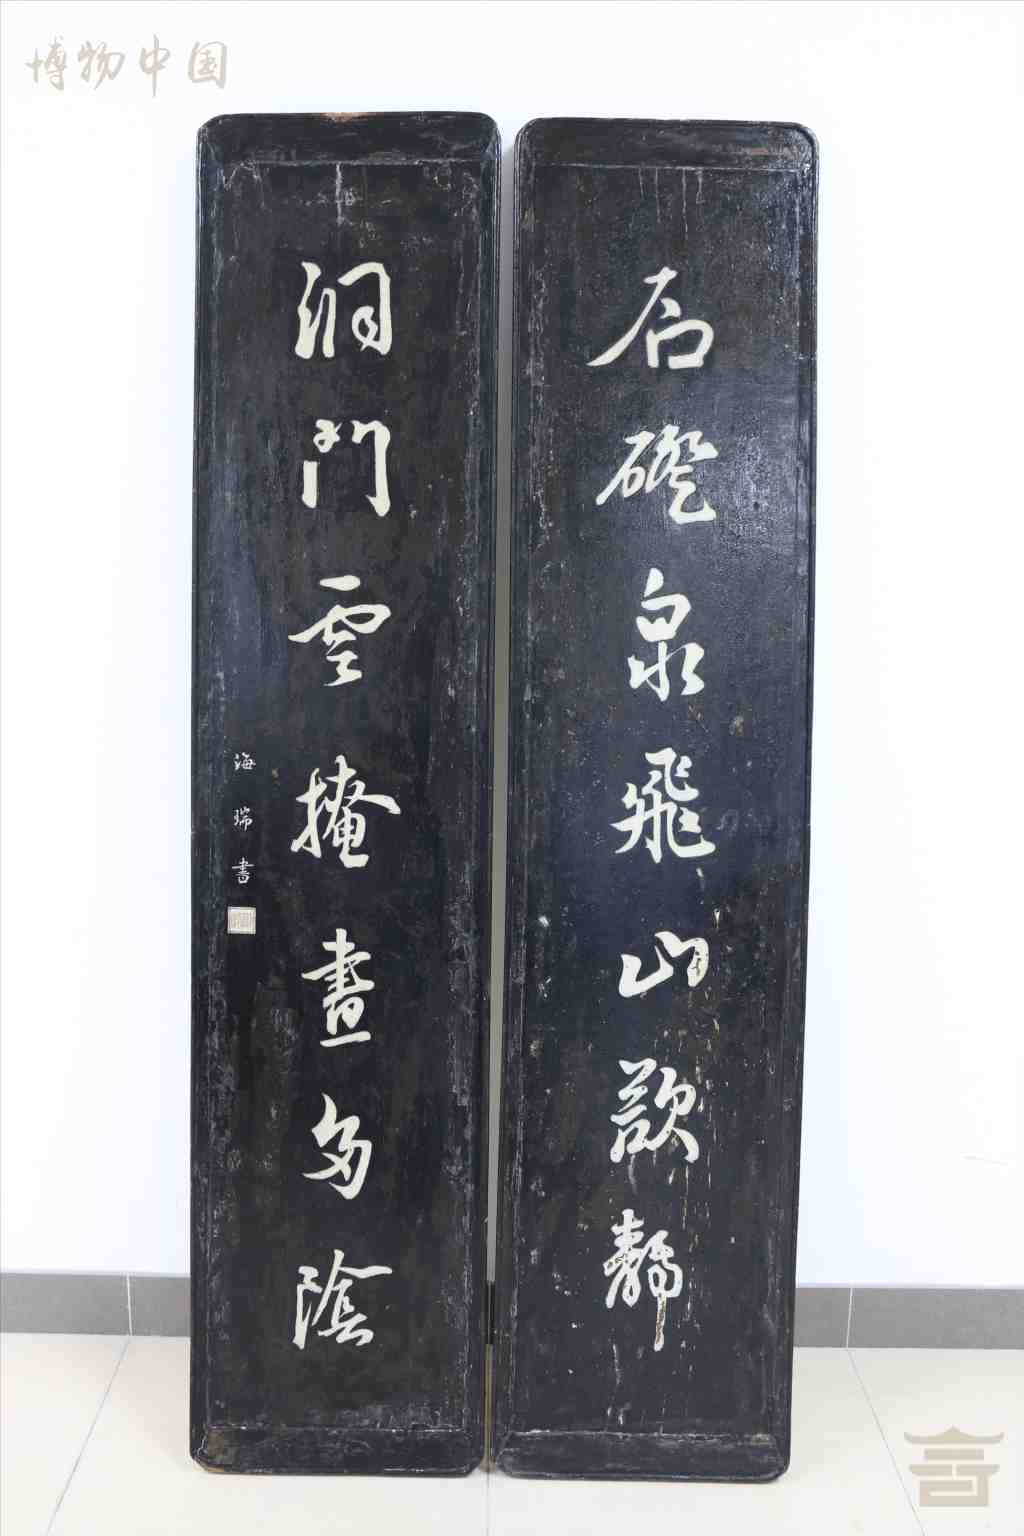 博物中国
石磴泉飛山欲靜
洞門雲掩晝多陰
海瑞書